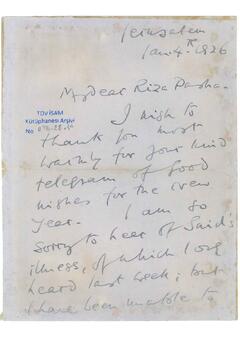 Jerusalem
Jan. 4th 1926
My dear Riza Pasha.
TDV İSAM
Kütüphanesi Arşivi
No
I wish to
thank you most
warmly for your kind
telegram of good
wishes for the new
year. I am so
sorry to hear of Said's
illness, of which I only
heard last week; but
I have been unable to